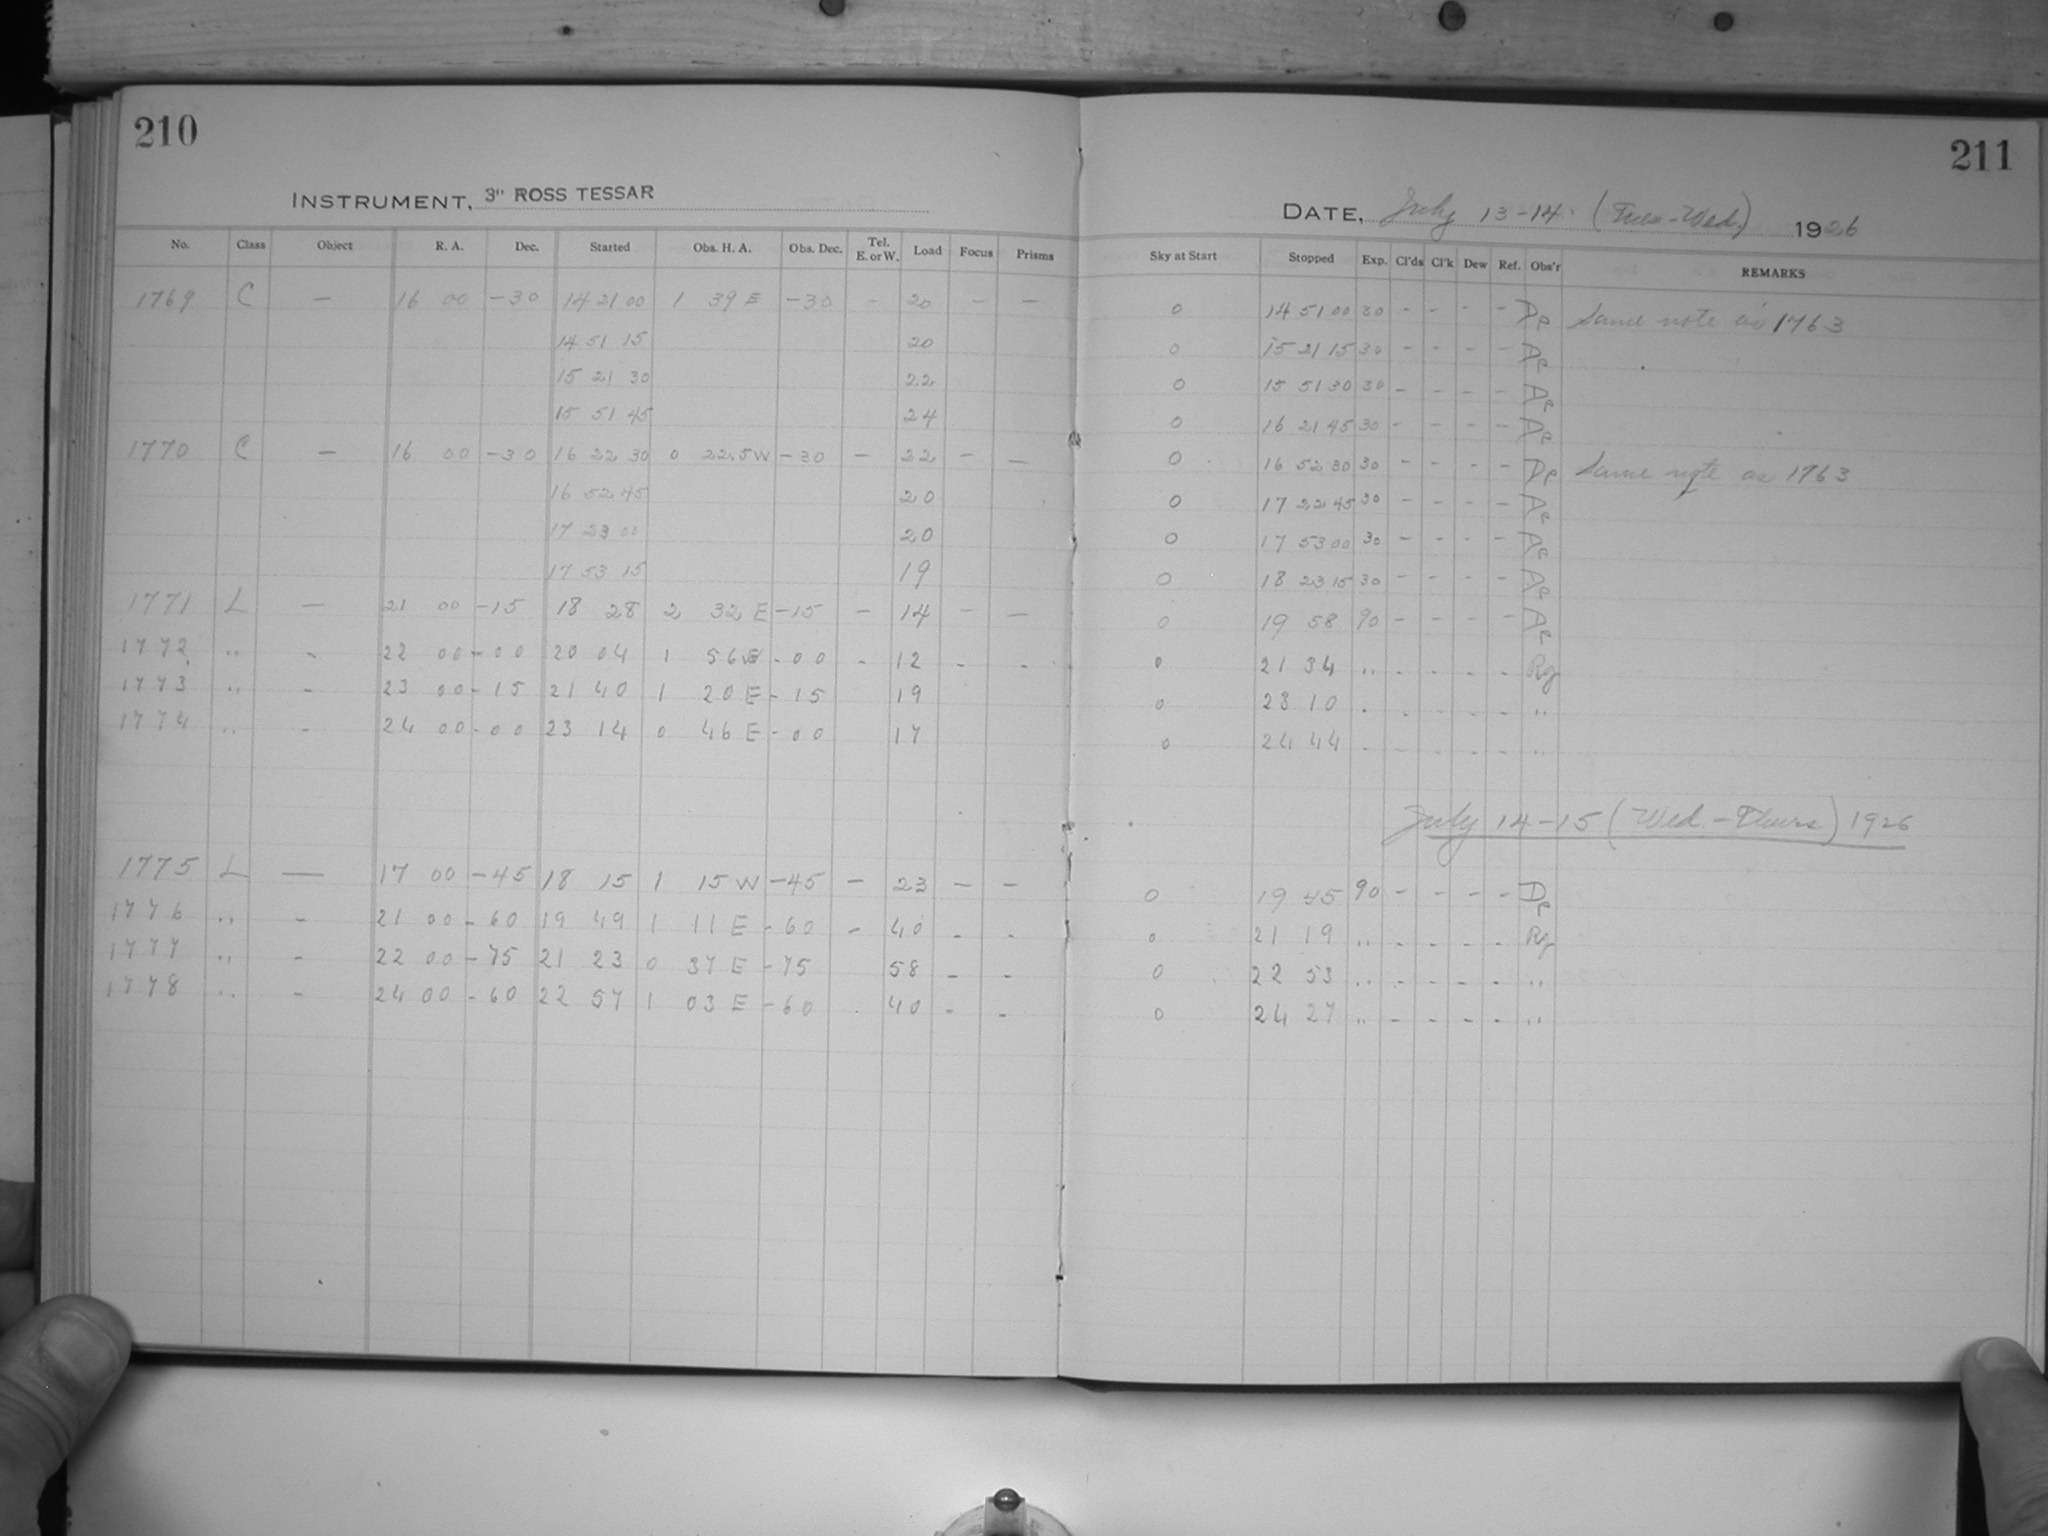 210
INSTRUMENT, 3" ROSS TESSAR
No. Class Object R. A. Dec. Started Obs. H. A. Obs. Dec. Tel. E. or W. Load Focus Prisms
1769 C — 16 00 -30 14 21 00 1 39 E -30 - 20 - —
14 51 15 20
15 21 30 22
15 51 45 24
1770 C — 16 00 -30 16 22 30 0 22.5W -30 - 22 - —
16 52 45 20
17 23 00 20
17 53 15 19
1771 L — 21 00 -15 18 28 2 32 E -15 - 14 - —
1772 " - 22 00 -00 20 04 1 56 E -00 - 12 - -
1773 " - 23 00 -15 21 40 1 20 E -15 19
1774 " - 24 00 -00 23 14 0 46 E -00 17
1775 L — 17 00 -45 18 15 1 15 W -45 - 23 - -
1776 " - 21 00 -60 19 49 1 11 E -60 - 40 - -
1777 " - 22 00 -75 21 23 0 37 E -75 58 - -
1778 " - 24 00 -60 22 57 1 03 E -60 . 40 - -
211
DATE, July 13-14 (Tues-Wed.) 1926
Sky at Start Stopped Exp. Cl'ds Cl'k Dew Ref. Obs'r REMARKS
0 14 51 00 30 - - - - De Same note as 1763
0 15 21 15 30 - - - - Ae
0 15 51 30 30 - - - - Ae
0 16 21 45 30 - - - - Ae
0 16 52 30 30 - - - - De Same note as 1763
0 17 22 45 30 - - - - Ae
0 17 53 00 30 - - - - Ae
0 18 23 15 30 - - - - Ae
0 19 58 90 - - - - Ae
0 21 34 " - - - -
0 23 10 " - - - - "
0 24 44 - - - - - "
July 14-15 (Wed.-Thurs) 1926
0 19 45 90 - - - - De
0 21 19 " - - - -
0 22 53 " - - - - "
0 24 27 " - - - - "